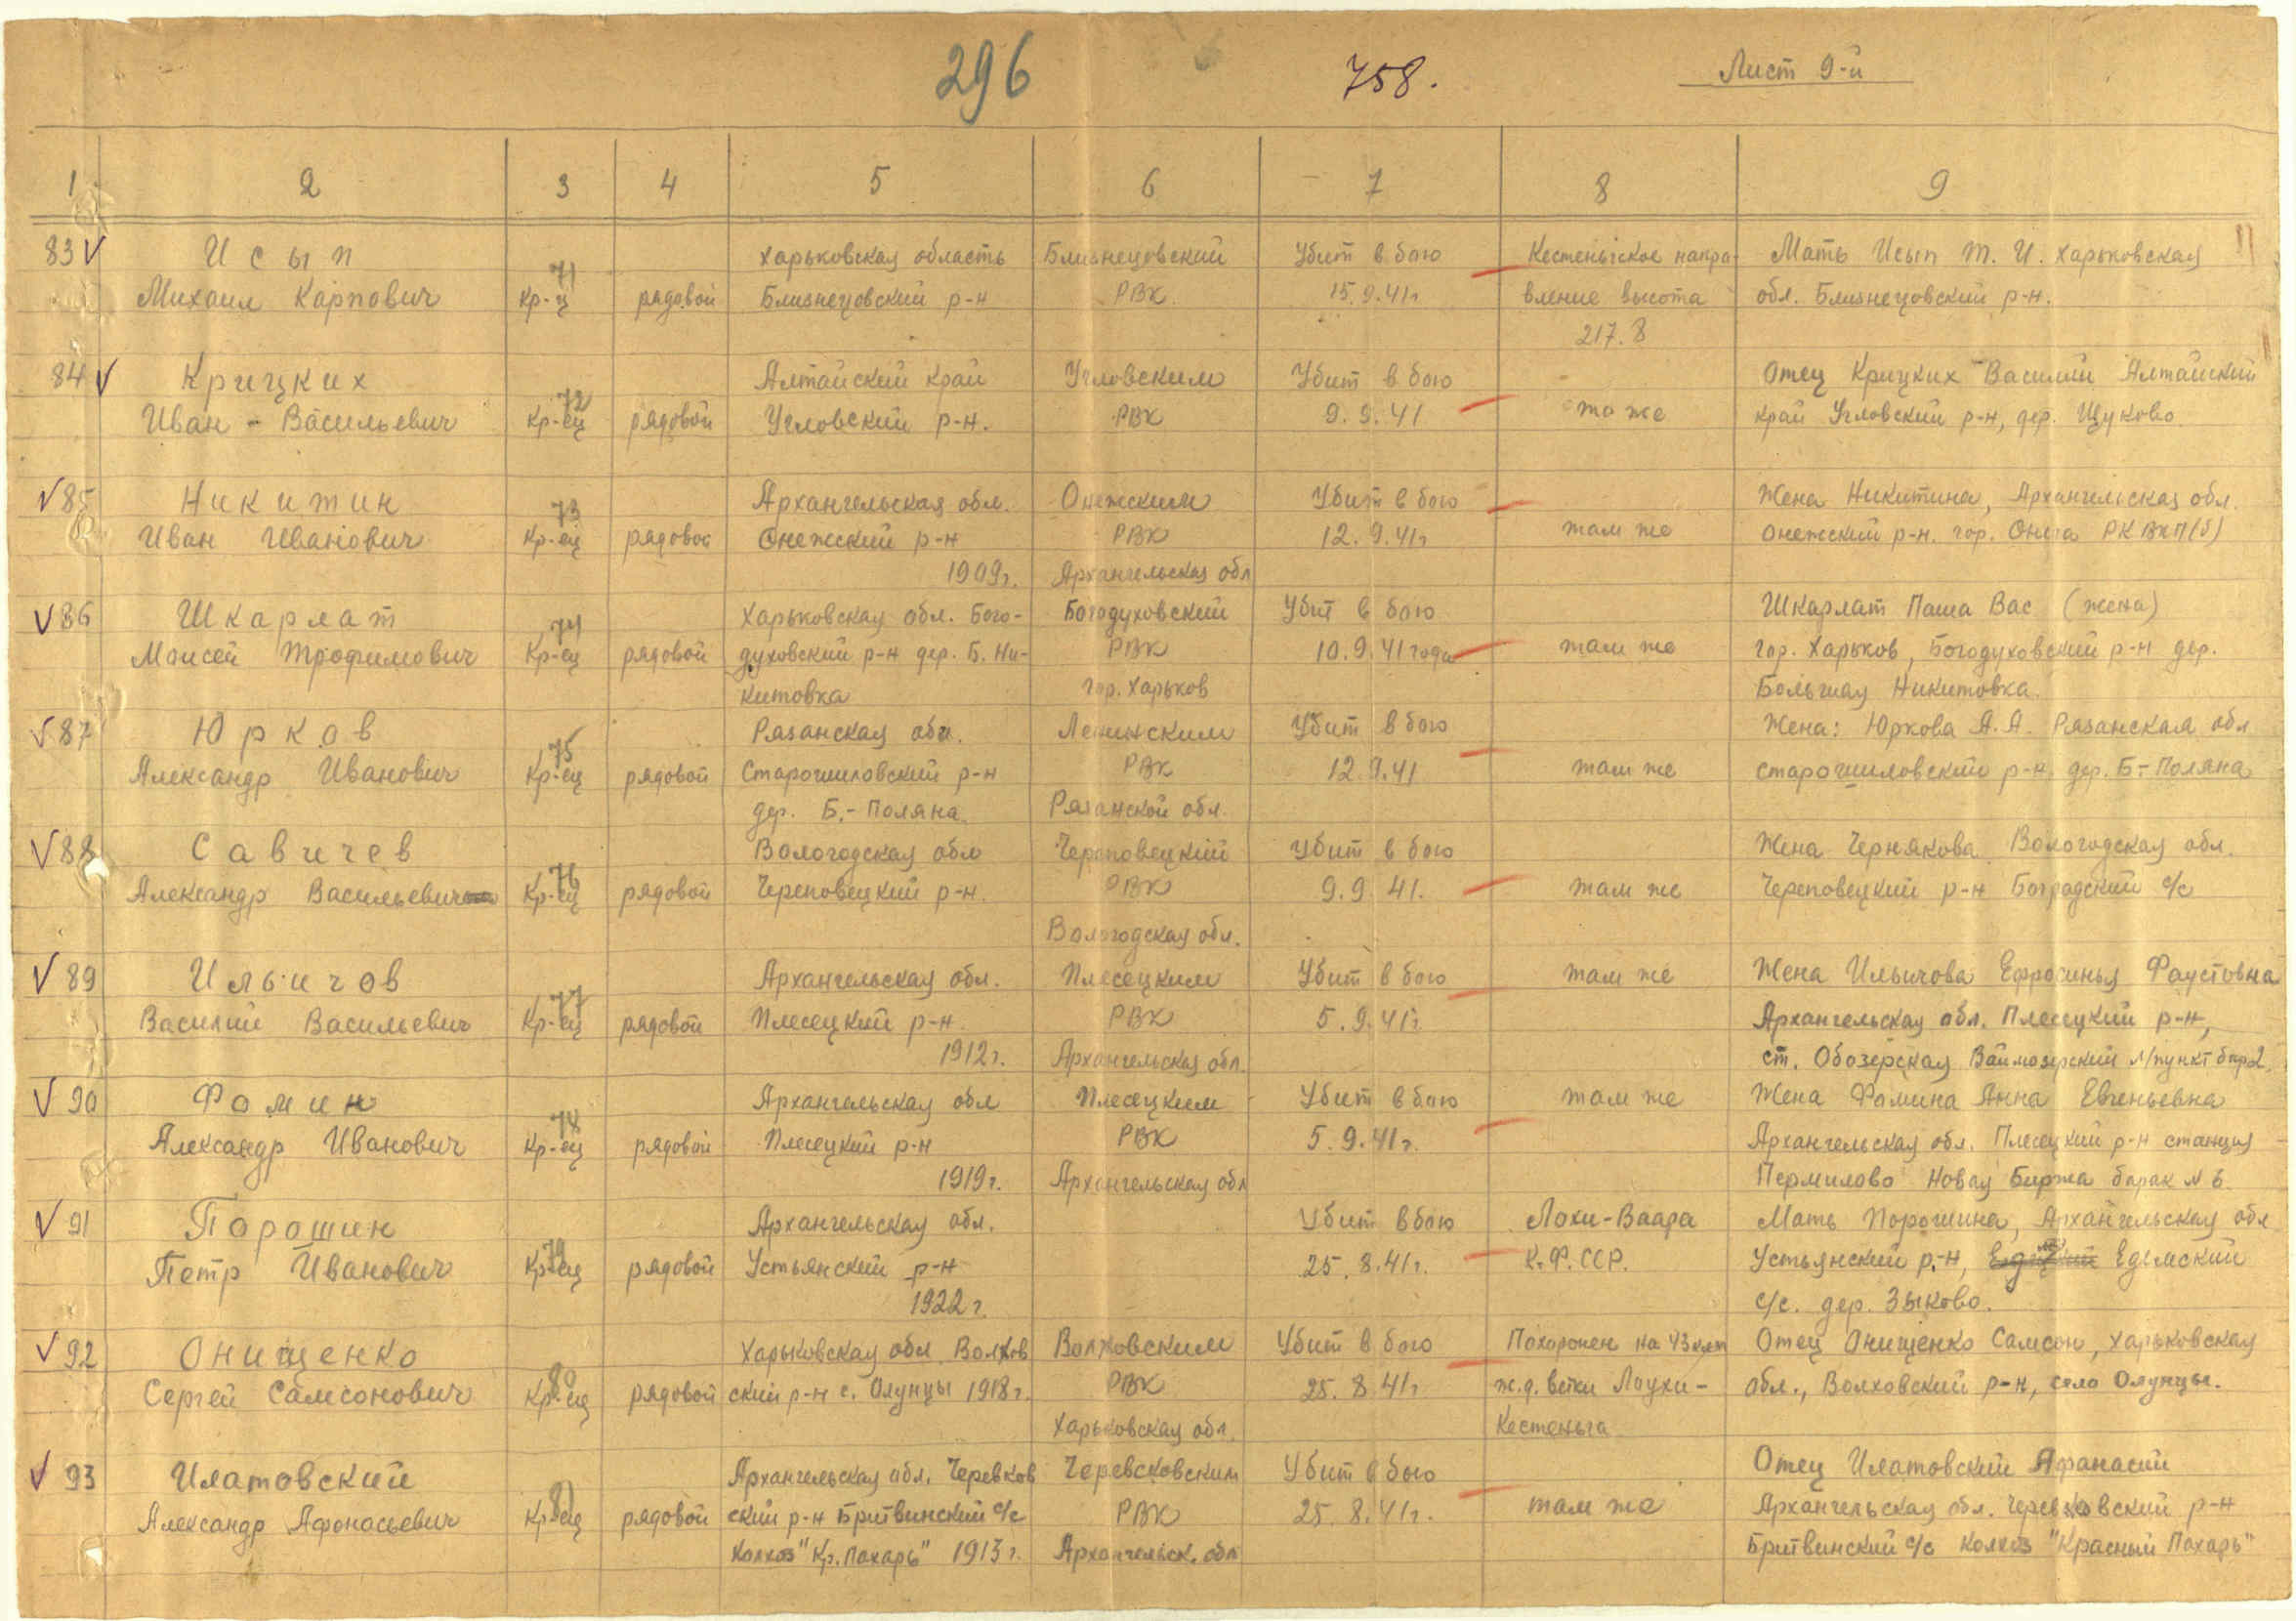 296 758. Лист 9-й
1 2 3 4 5 6 7 8 9
83 Исып Харьковская область Близнецовский Убит в бою Кестеньгское напра- Мать Исып Т. И. Харьковская
71
Михаил Карпович Кр-ц рядовой Близнецовский р-н РВК. 15.9.41г вление высота обл. Близнецовский р-н.
217.8
84 Крицких Алтайский край Угловским Убит в бою Отец Крицких Василий Алтайский
72
Иван - Васильевич Кр-ец рядовой Угловский р-н. РВК 9.9.41 то же край Угловский р-н, дер. Щуково
85 Никитин Архангельская обл. Онежским Убит в бою Жена Никитина, Архангельская обл.
73
Иван Иванович Кр-ец рядовой Онежский р-н РВК 12.9.41г там же Онежский р-н. гор. Онега РК ВКП(б)
1909г. Архангельская обл
86 Шкарлат Харьковская обл. Бого- Богодуховский Убит в бою Шкарлат Паша Вас (жена)
74
Моисей Трофимович Кр-ец рядовой духовский р-н дер. Б. Ни- РВК 10.9.41 года там же гор. Харьков, Богодуховский р-н дер.
китовка гор. Харьков Большая Никитовка.
87 Юрков Рязанская обл. Ленинским Убит в бою Жена: Юркова А.А. Рязанская обл
75
Александр Иванович Кр-ец рядовой Старошиловский р-н РВК 12.9.41 там же старошиловский р-н дер. Б.-Поляна
дер. Б.-Поляна Рязанской обл.
88 Савичев Вологодская обл Череповецкий Убит в бою Жена Чернякова Вологодская обл.
76
Александр Васильевич Кр-ец рядовой Череповецкий р-н. РВК 9.9.41. там же Череповецкий р-н Боградский с/с
Вологодская обл.
89 Ильичов Архангельская обл. Плесецким Убит в бою там же Жена Ильичова Ефросинья Фаустовна
77
Василий Васильевич Кр-ец рядовой Плесецкий р-н. РВК 5.9.41г. Архангельская обл. Плесецкий р-н,
1912г. Архангельская обл. ст. Обозерская Ваймозерский л/пункт бар 2.
90 Фомин Архангельская обл Плесецким Убит в бою там же Жена Фомина Анна Евгеньевна
78
Александр Иванович Кр-ец рядовой Плесецкий р-н РВК 5.9.41г. Архангельская обл. Плесецкий р-н станция
1919г. Архангельская обл Пермилово Новая Биржа барак № 6
91 Порошин Архангельская обл. Убит в бою Лохи-Ваара Мать Порошина, Архангельская обл
79
Петр Иванович Кр-ец рядовой Устьянский р-н 25.8.41г. К.Ф.ССР. Устьянский р-н, Едьмский
1922г. с/с. дер. Зыково.
92 Онищенко Харьковская обл. Волхов Волховским Убит в бою Похоронен на 43 клм Отец Онищенко Самсон, Харьковская
80
Сергей Самсонович Кр-ец рядовой ский р-н с. Олунцы 1918г. РВК 25.8.41г ж.д. ветки Лоухи- обл., Волховский р-н, село Олунцы.
Харьковская обл. Кестеньга
93 Илатовский Архангельская обл. Черевков Черевсковским Убит в бою Отец Илатовский Афанасий
81
Александр Афонасьевич Кр-ец рядовой ский р-н Бритвинский с/с РВК 25.8.41г. там же Архангельская обл. Черевковский р-н
колхоз "Кр. Пахарь" 1913г. Архангельск. обл Бритвинский с/с колхоз "Красный Пахарь"